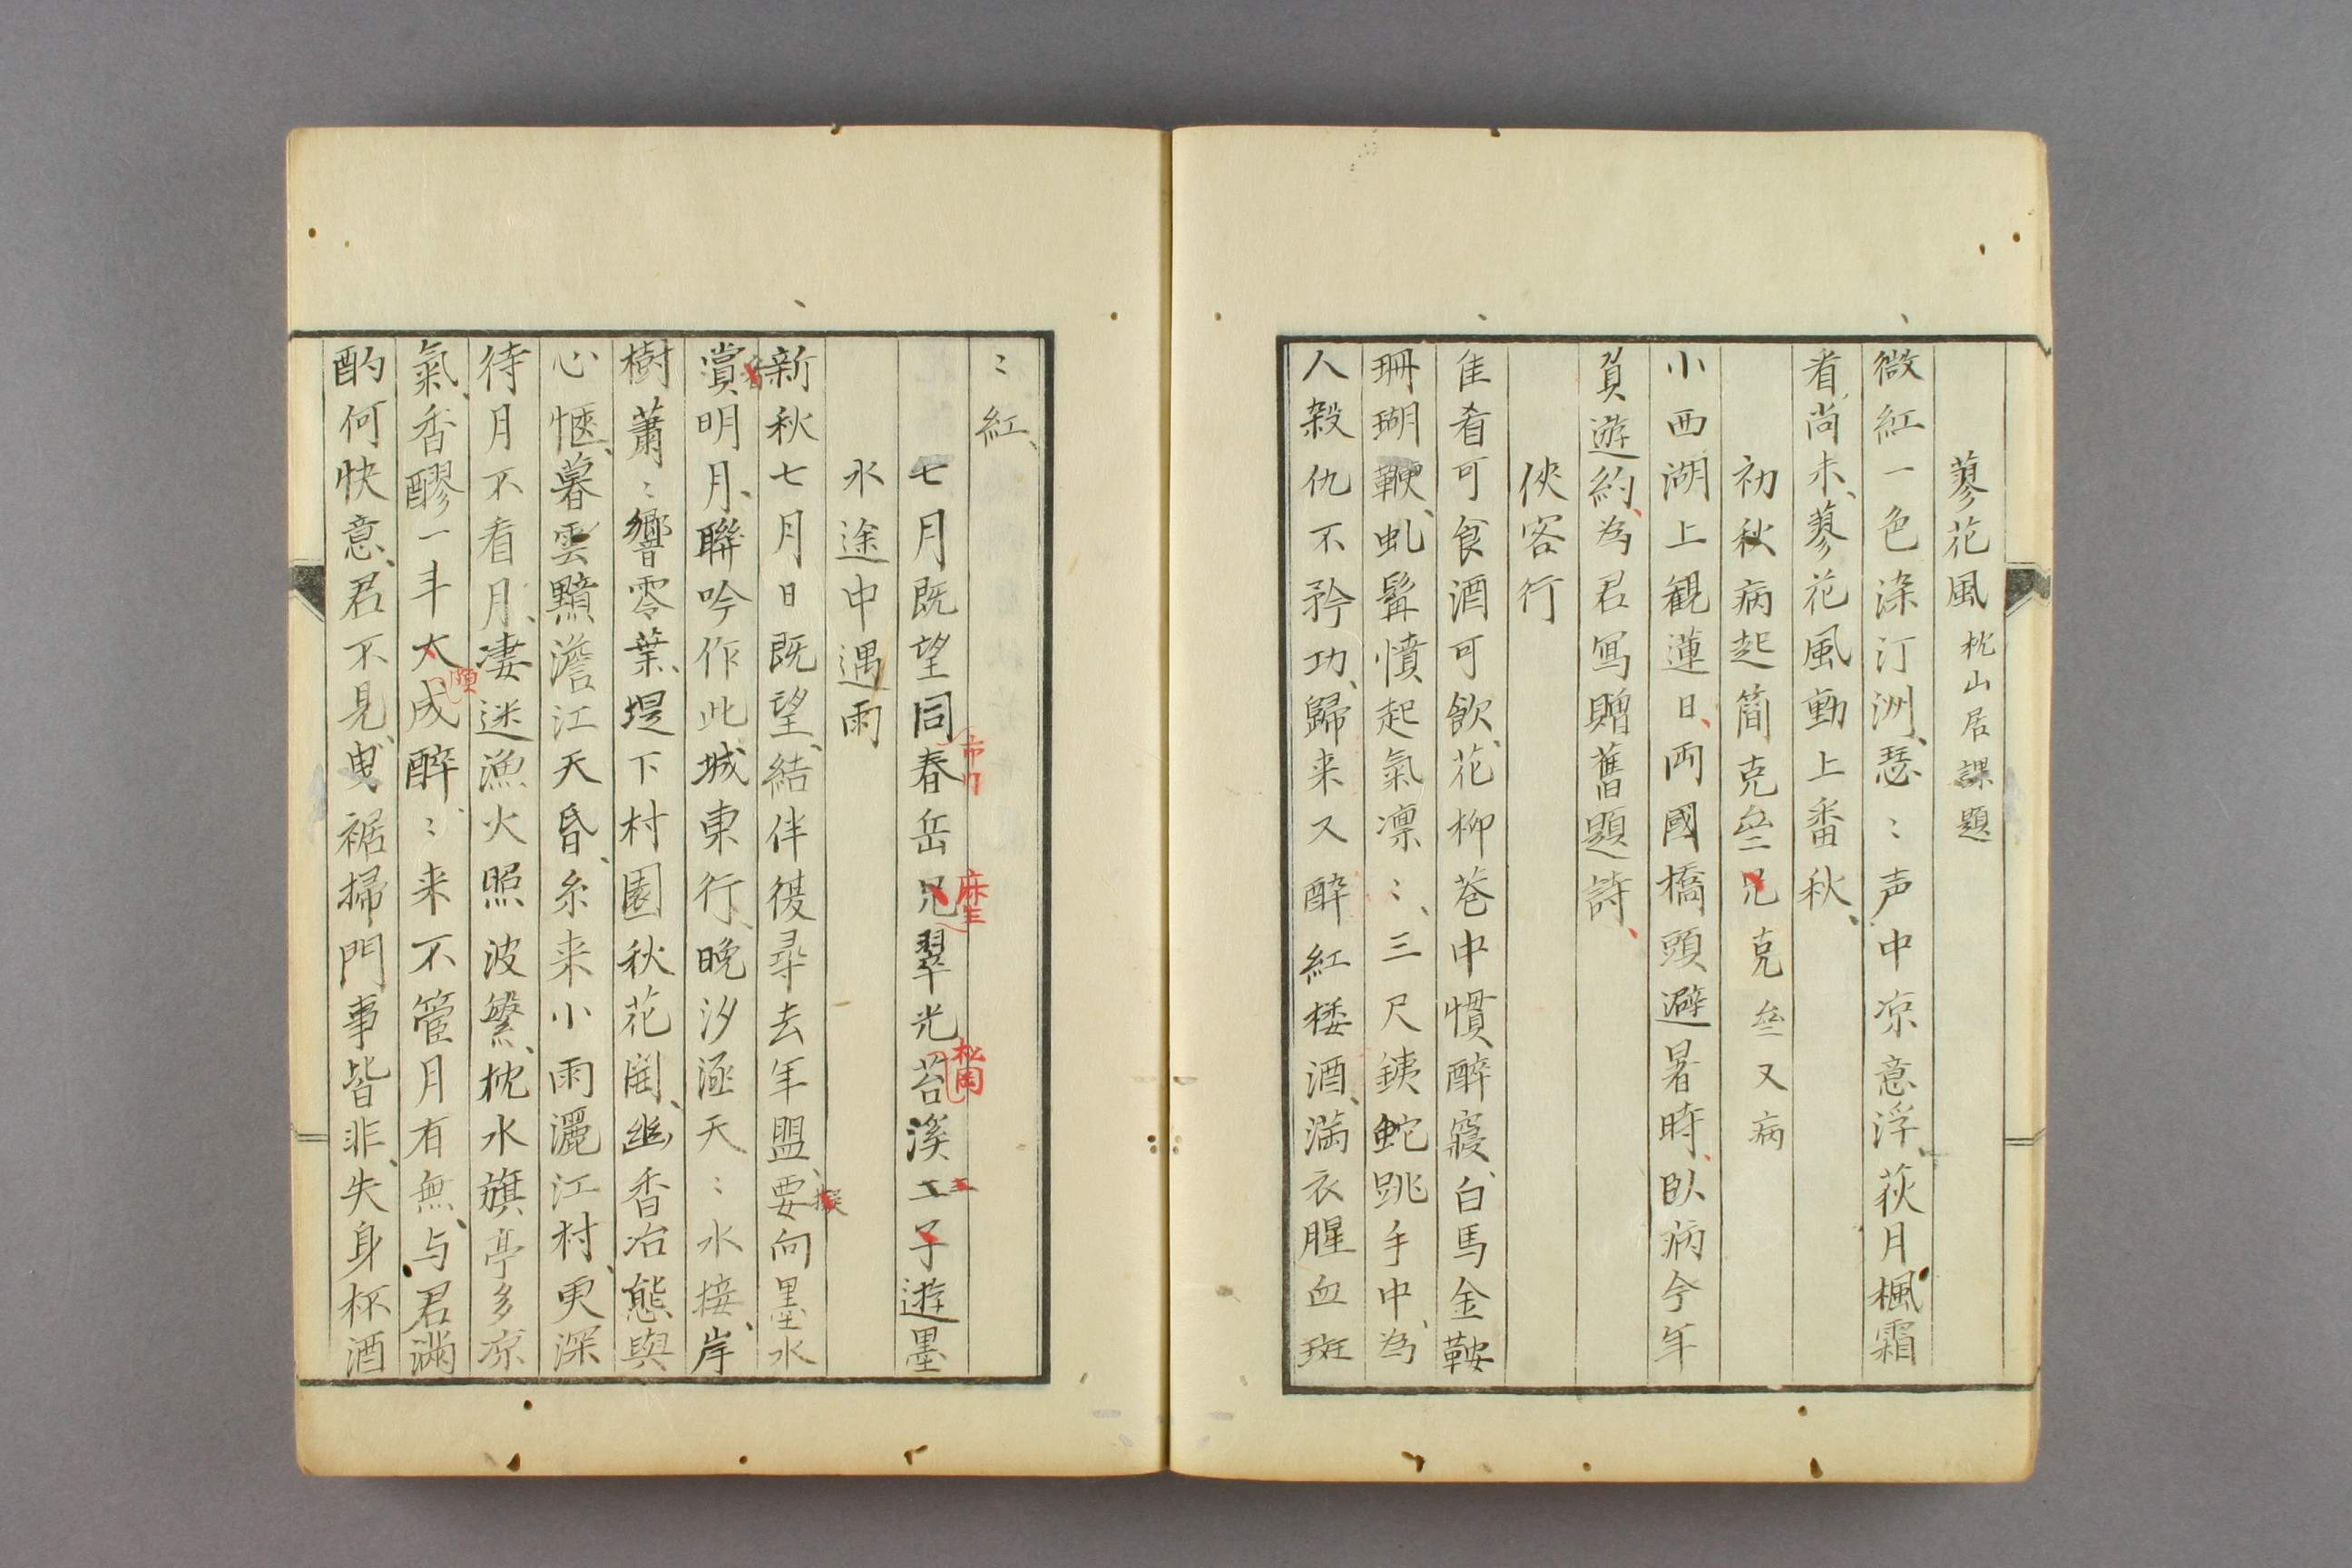 蓼花風 枕山居課題
微紅一色染汀洲、瑟〻声中凉意浮、荻月楓霜
看尚未、蓼花風動上番秋、
初秋病起簡克壑兄 克壑又病
小西湖上観蓮日、両國橋頭避暑時、臥病今年
負遊約、為君写贈舊題詩、
俠客行
佳肴可食酒可飲、花柳巷中慣醉寢、白馬金鞍
珊瑚鞭、虬髯憤起氣凛〻、三尺銕蛇跳手中、為
人殺仇不矜功、歸来又醉紅楼酒、満衣腥血斑
〻紅、
七月既望同春岳兄翠光苔溪二子遊墨
水途中遇雨
新秋七月日既望、結伴復尋去年盟、要向墨水
賞明月、聯吟作此城東行、晩汐涵天〻水接、岸
樹蕭〻響零葉、堤下村園秋花開、幽香冶態與
心愜、暮雲黯澹江天昏、糸来小雨灑江村、更深
待月不看月、凄迷漁火照波繁、枕水旗亭多凉
氣、香醪一斗大成醉、〻来不管月有無、与君満
酌何快意、君不見、曳裾掃門事皆非、失身杯酒
麻生
松岡
擬
頗